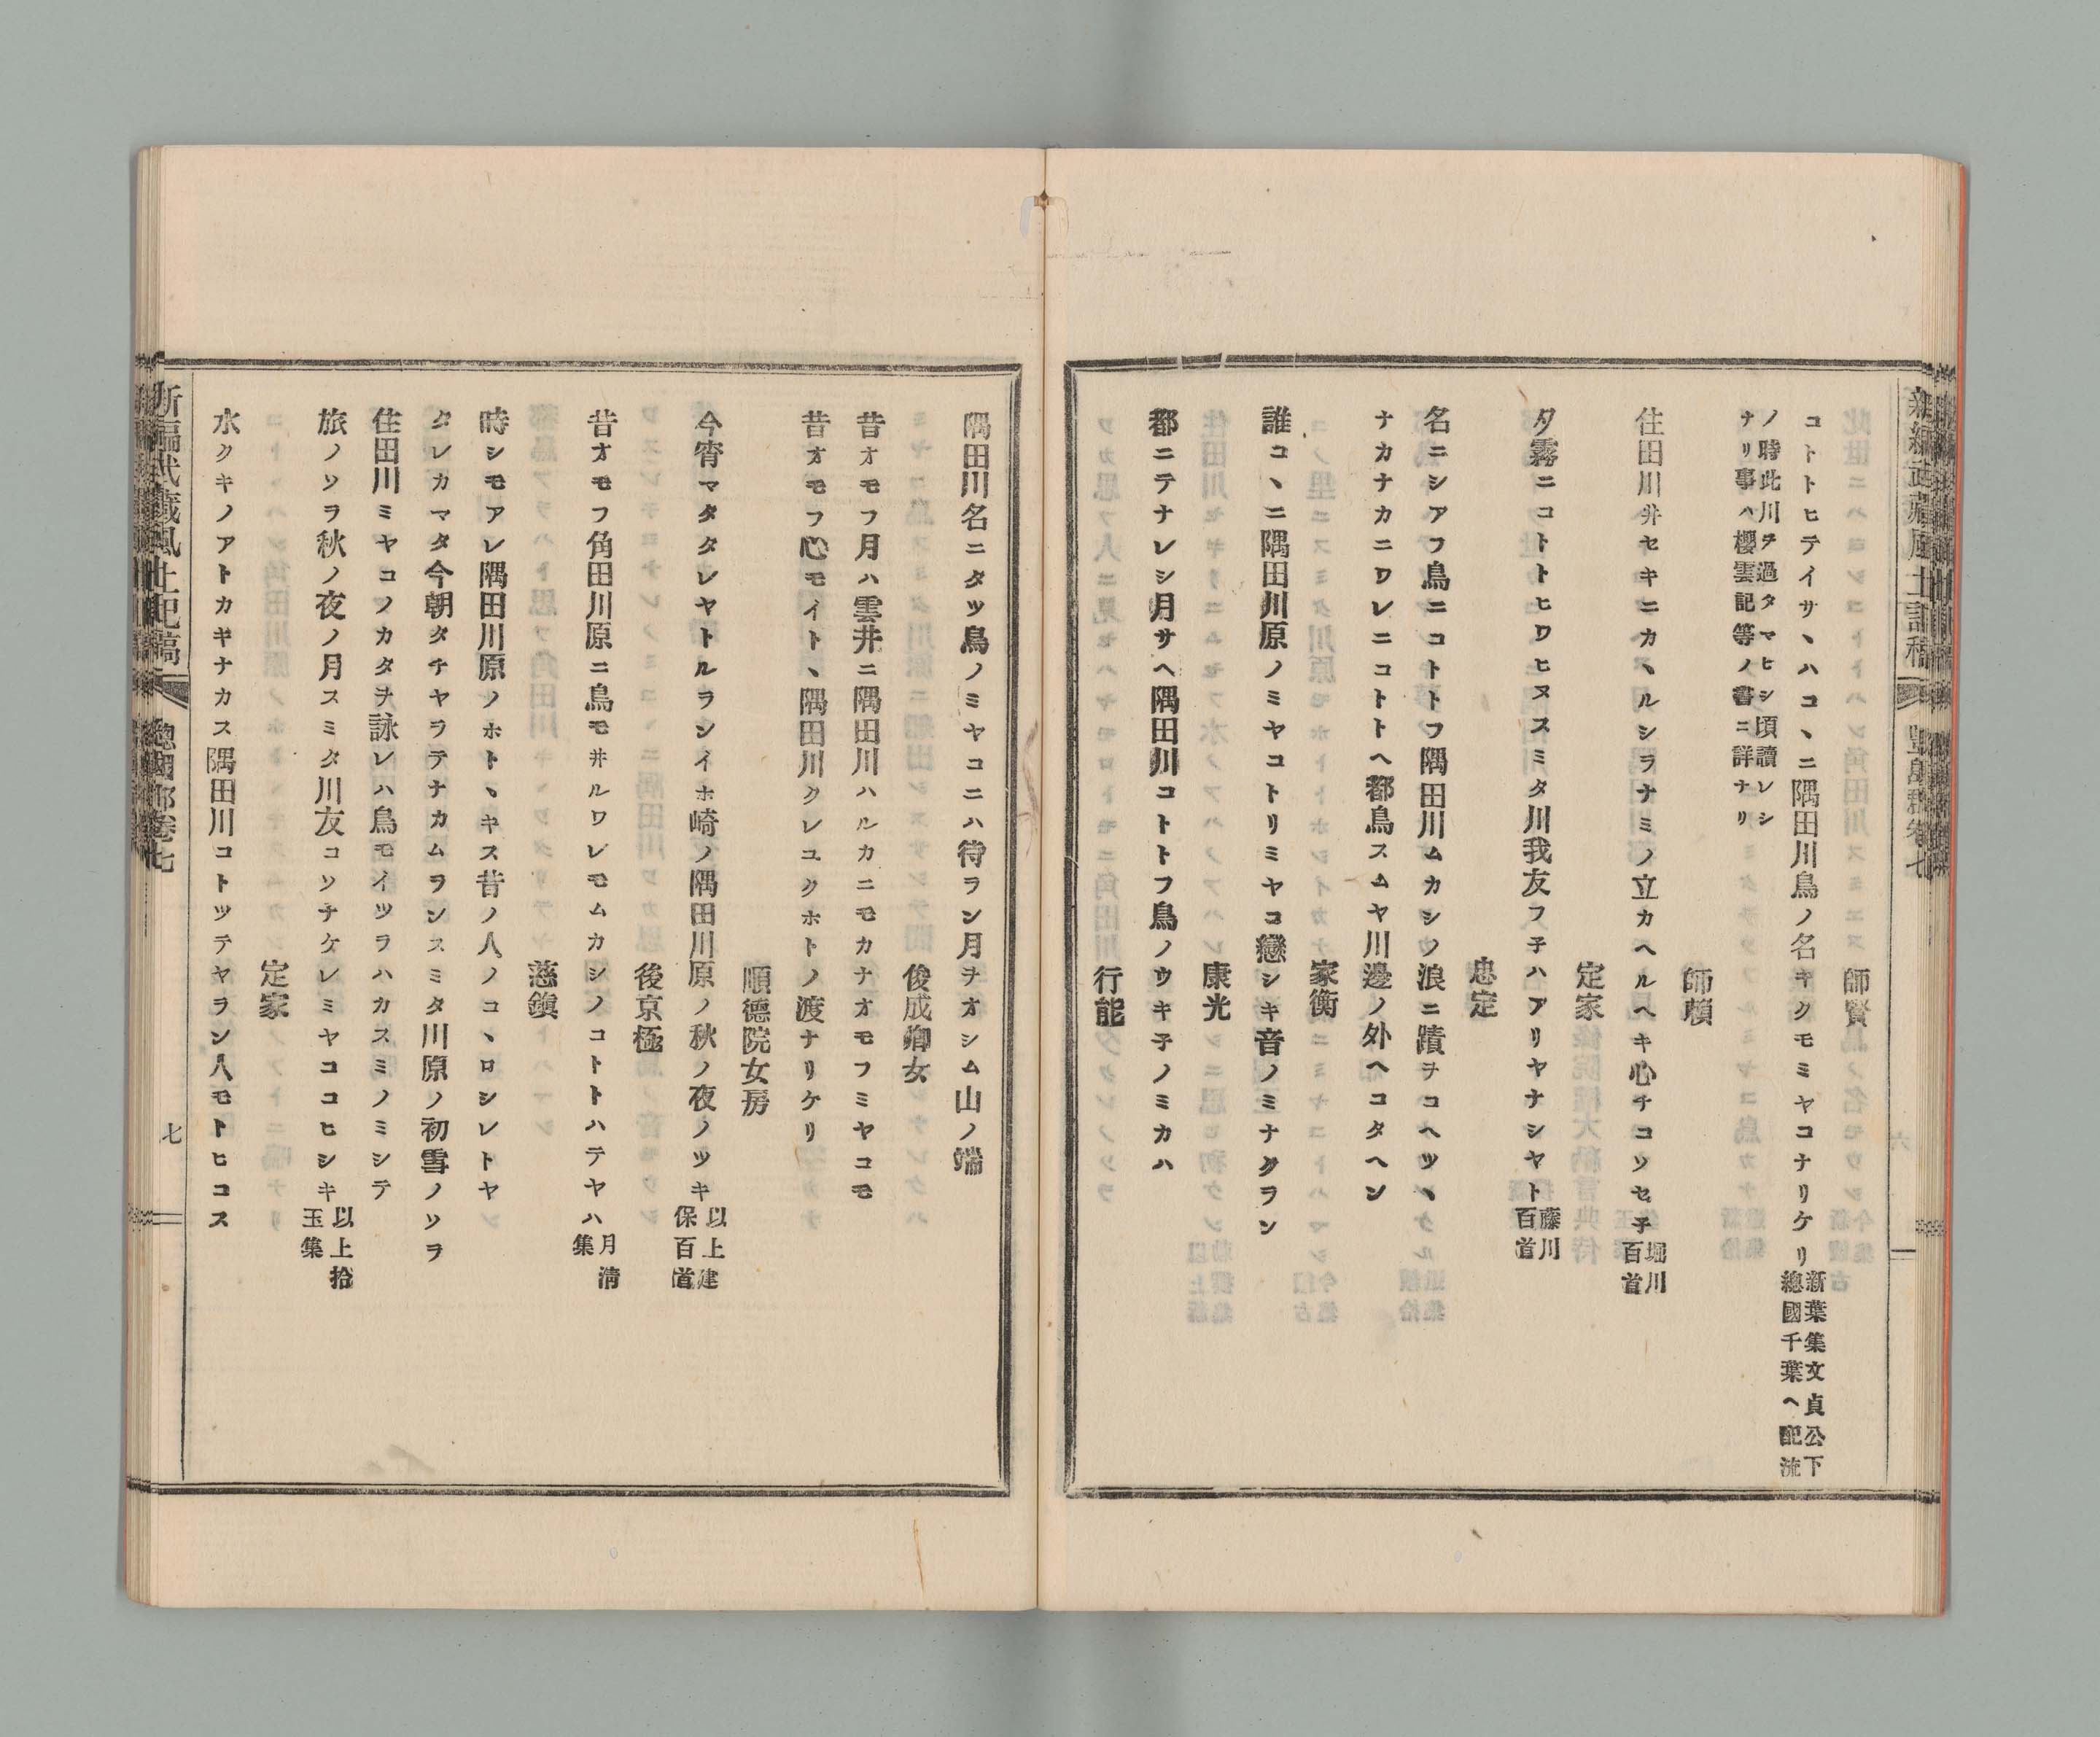 新編武蔵風土記稿 豊島郡卷七
師賢
コトトヒテイサヽハコヽニ隅田川鳥ノ名キクモミヤコナリケリ新葉集文貞公下總國千葉ヘ配流
ノ時此川ヲ過タマヒシ頃讀レシ
ナリ事ハ櫻雲記等ノ書ニ詳ナリ
師頼
住田川井セキニカヽルシラナミノ立カヘルヘキ心チコソセ子堀川百首
定家
夕霧ニコトトヒワヒヌスミタ川我友フ子ハアリヤナシヤト藤川百首
忠定
名ニシアフ鳥ニコトトフ隅田川ムカシノ浪ニ蹟ヲコヘツヽ
ナカナカニワレニコトトヘ都鳥スムヤ川邊ノ外ヘコタヘン
家衡
誰コヽニ隅田川原ノミヤコトリミヤコ戀シキ音ノミナクラン
康光
都ニテナレシ月サヘ隅田川コトトフ鳥ノウキ子ノミカハ
行能
隅田川名ニタツ鳥ノミヤコニハ待ラン月ヲオシム山ノ端
俊成卿女
昔オモフ月ハ雲井ニ隅田川ハルカニモカナオモフミヤコモ
昔オモフ心モイトヽ隅田川クレユクホトノ渡ナリケリ
順德院女房
今宵マタタレヤトルランイホ崎ノ隅田川原ノ秋ノ夜ノツキ以上建保百首
後京極
昔オモフ角田川原ニ鳥モ井ルワレモムカシノコトトハテヤハ月淸集
慈鎭
時シモアレ隅田川原ノホトヽキス昔ノ人ノコヽロシレトヤ
タレカマタ今朝タチヤラテナカムランスミタ川原ノ初雪ノソラ
住田川ミヤコノカタヲ詠レハ鳥モイツラハカスミノミシテ
旅ノソラ秋ノ夜ノ月スミタ川友コソナケレミヤココヒシキ以上拾玉集
定家
水クキノアトカキナカス隅田川コトツテヤラン人モトヒコス
新編武蔵風土記稿 總國部卷七
七